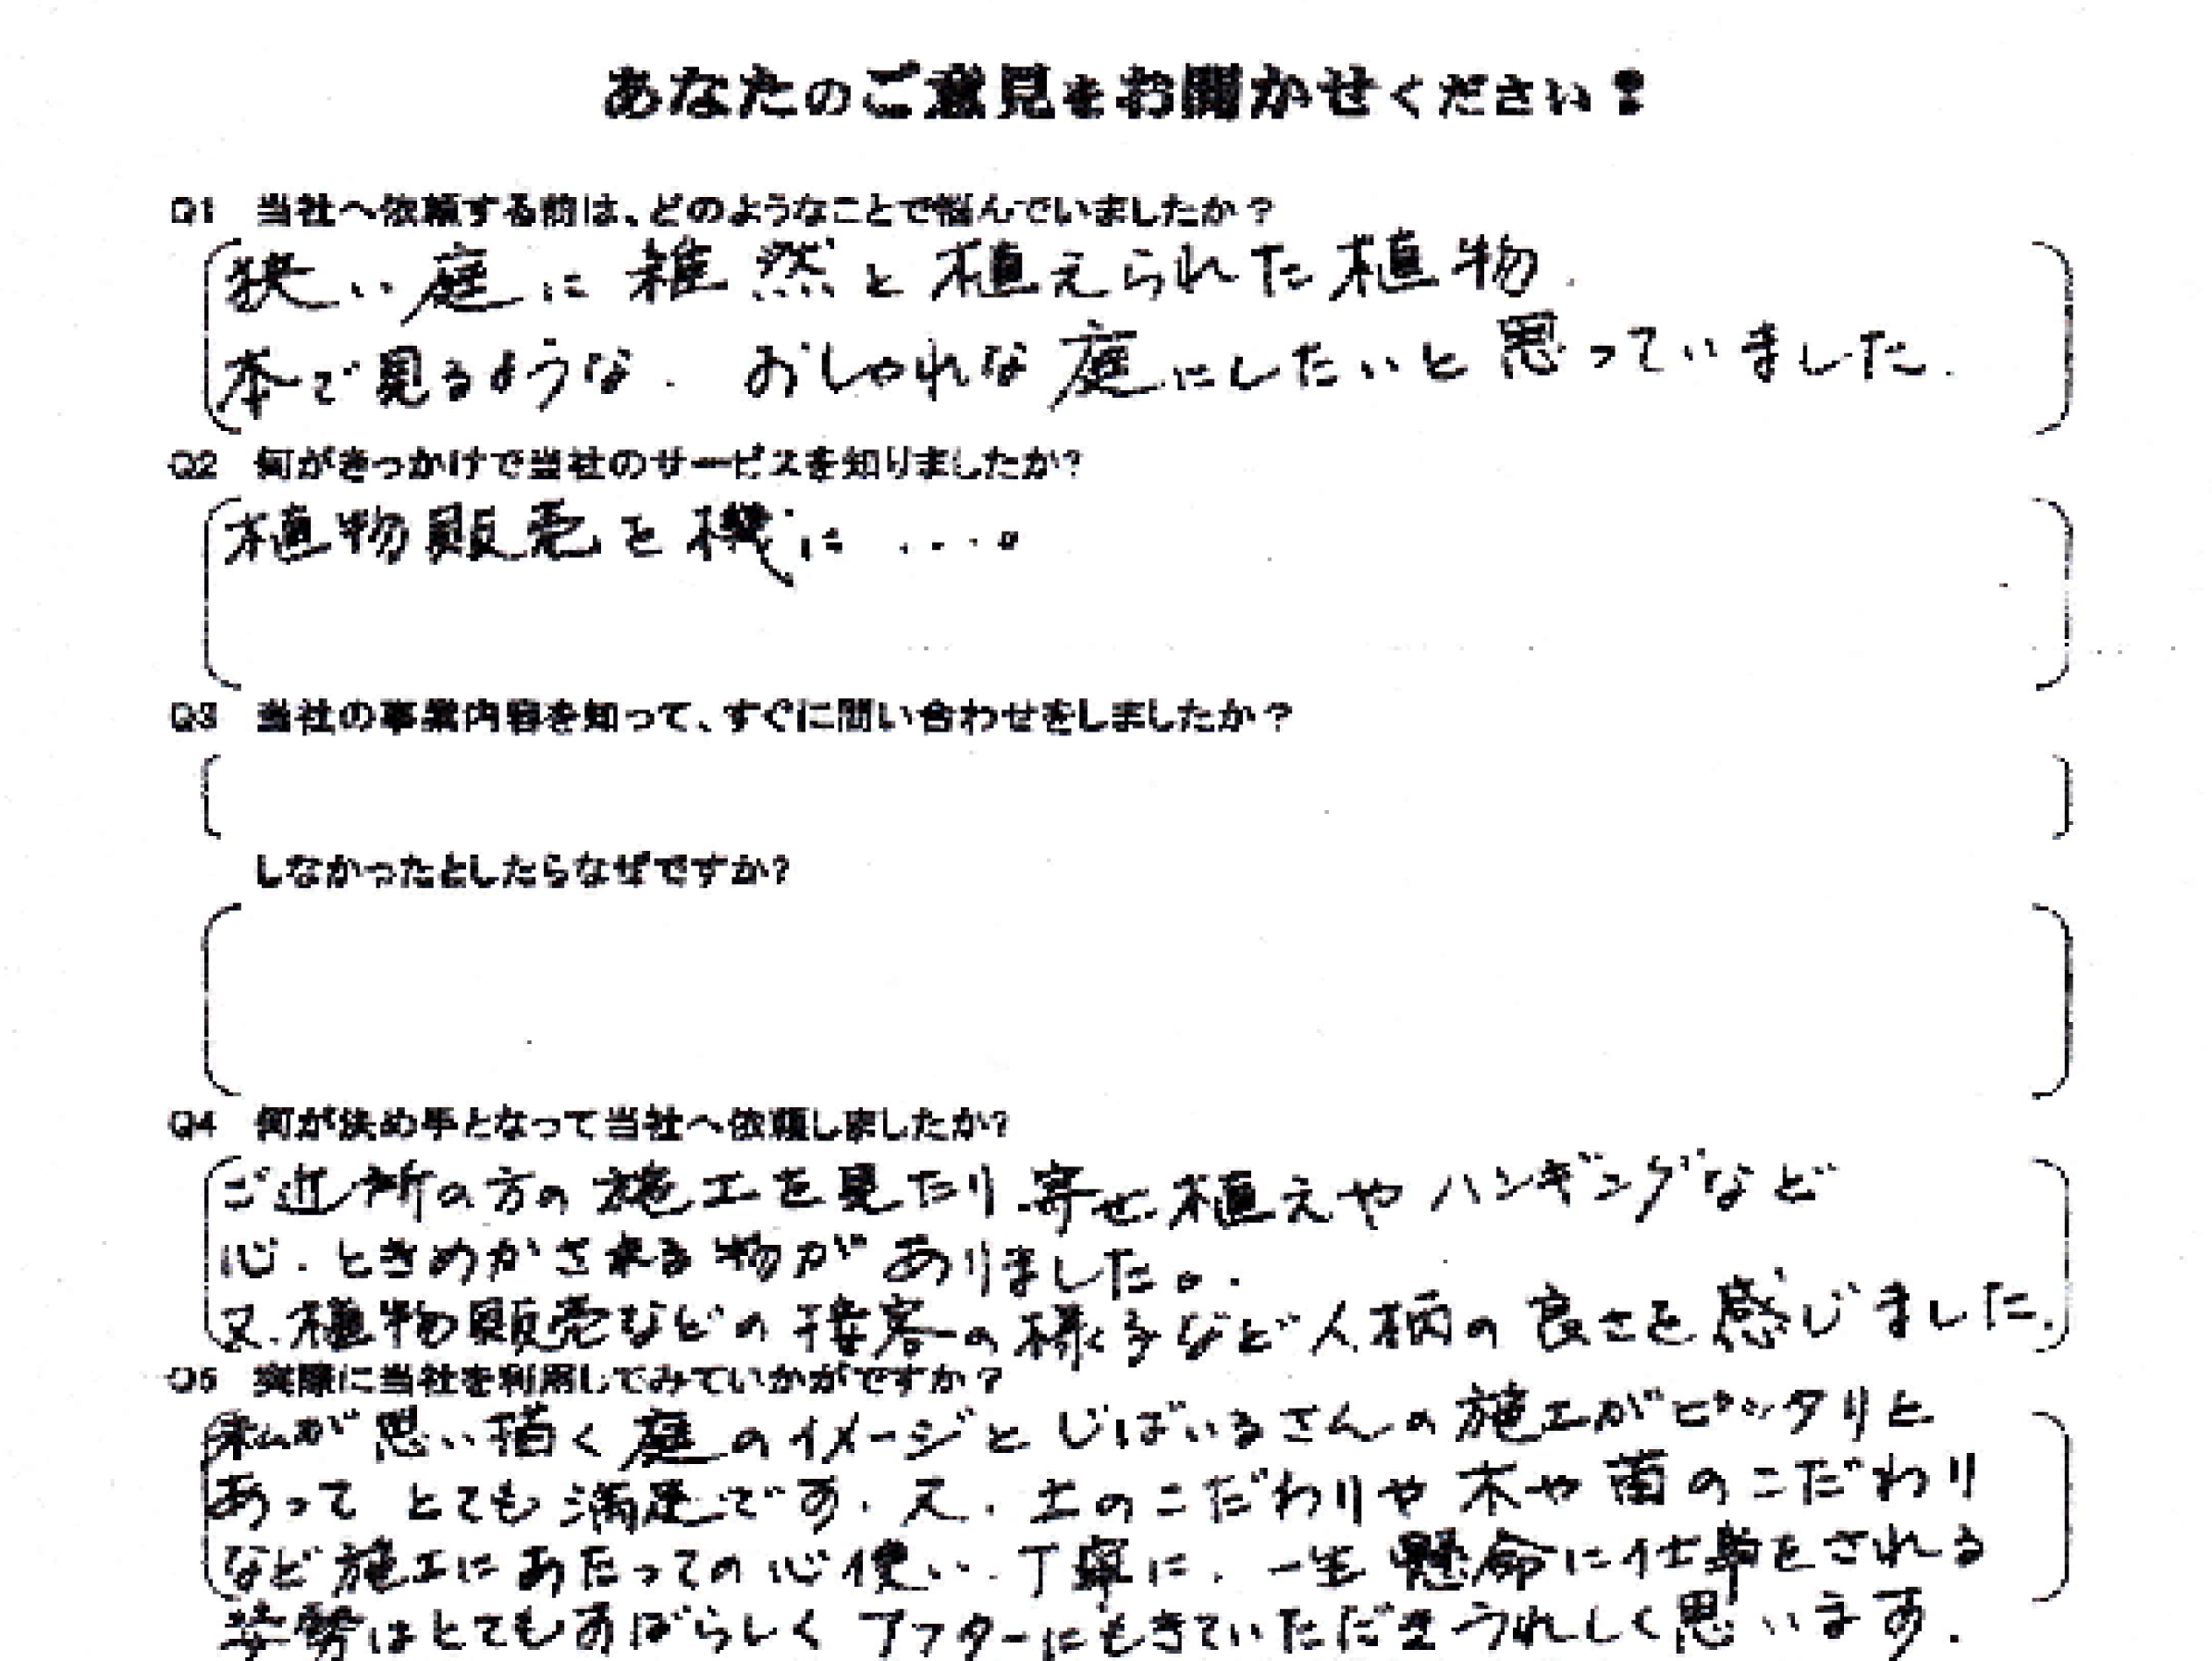 あなたのご意見をお聞かせください！
Q1 当社へ依頼する前は、どのようなことで悩んでいましたか？
狭い庭に雑然と植えられた植物.
本で見るような. おしゃれな庭にしたいと思っていました.
Q2 何がきっかけで当社のサービスを知りましたか?
植物販売を機に ....。
Q3 当社の事業内容を知って、すぐに問い合わせをしましたか？
しなかったとしたらなぜですか?
Q4 何が決め手となって当社へ依頼しましたか?
ご近所の方の施工を見たり 寄せ植えや ハンギングなど
心. ときめかされる物がありました。.
又. 植物販売などの接客の様子など人柄の良さを感じました.
Q5 実際に当社を利用してみていかがですか？
私が思い描く庭のイメージと じばいるさんの施工がピッタリと
あって とても満足です. 又. 土のこだわりや 木や苗のこだわり
など 施工にあたっての心使い. 丁寧に. 一生懸命に仕事をされる
姿勢はとてもすばらしく アフターにもきていただきうれしく思います.